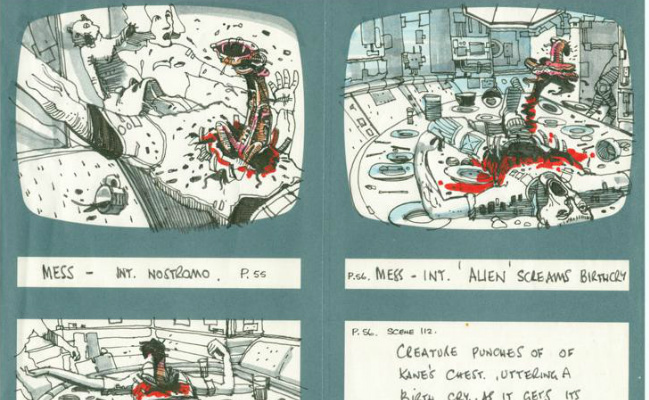 MESS - INT. NOSTROMO. P. 55
P. 56. MESS - INT. 'ALIEN' SCREAMS BIRTHCRY
P. 56. SCENE 112.
CREATURE PUNCHES OF OF
KANE'S CHEST. , UTTERING A
BIRTH CRY. AS IT GETS ITS